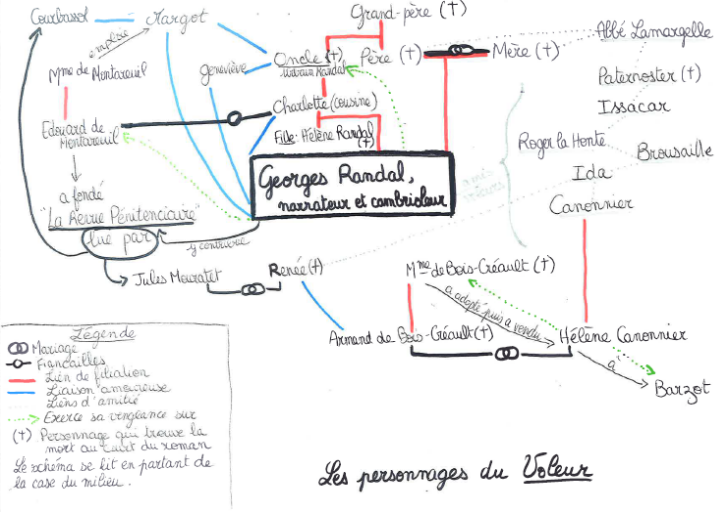 Courbassol
Margot
Grand-père (†)
Abbé Lamargelle
emploie
Geneviève
Oncle (†)
Urbain Randal
Père (†)
Mère (†)
Mme de Montareuil
Paternoster (†)
Issacar
Charlotte (cousine)
Edouard de
Montareuil
Fille: Hélène Randal
(†)
Roger la Honte
Broussaille
Ida
Canonnier
Georges Randal,
narrateur et cambrioleur
a fondé
"La Revue Pénitenciaire"
lue par
y contribue
Jules Mouratet
Renée (†)
Mme de Bois-Créault (†)
a adopté puis a vendu
Armand de Bois-Créault (†)
Hélène Canonnier
à
Barzot
Légende
Mariage
Fiançailles
Lien de filiation
Liaison amoureuse
Liens d'amitié
Exerce sa vengeance sur
(†) Personnage qui trouve la
mort au cours du roman
Le schéma se lit en partant de
la case du milieu.
Les personnages du Voleur